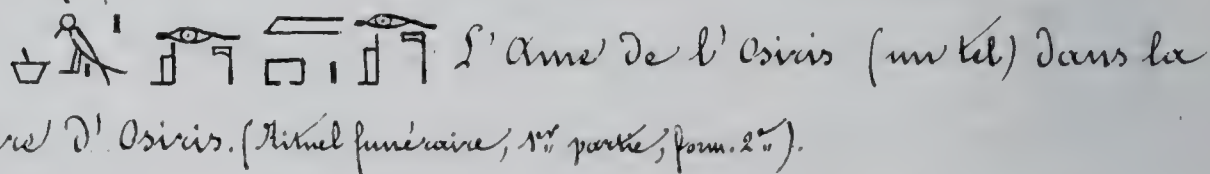 L'Ame de l'Osiris (un tel) dans la
re d'Osiris. (Rituel funéraire, 1re partie, form. 2e).